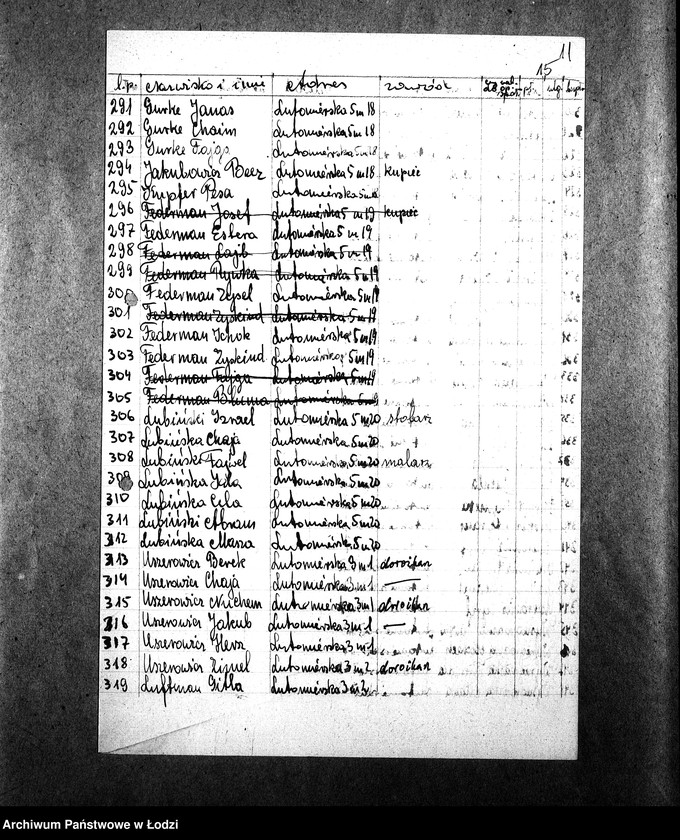 11
15
l.p. Nazwisko i imię Adres zawód
291 Gurke Janas Lutomierska 5 m 18
292 Gurke Chaim Lutomierska 5 m 18
293 Gurke Fajga Lutomierska 5 m 18
294 Jakubowicz Beer Lutomierska 5 m 18 kupiec
295 Kupfer Pesa Lutomierska 5 m
296 Federman Josef Lutomierska 5 m 19 kupiec
297 Federman Estera Lutomierska 5 m 19
298 Federman Lajb Lutomierska 5 m 19
299 Federman Rywka Lutomierska 5 m 19
300 Federman Lutomierska 5 m 19
301 Federman Zyskind Lutomierska 5 m 19
302 Federman Ichok Lutomierska 5 m 19
303 Federman Zyskind Lutomierska 5 m 19
304 Federman Fajga Lutomierska 5 m 19
305 Federman Bluma Lutomierska 5 m
306 Lubiński Izrael Lutomierska 5 m 20 stolarz
307 Lubińska Chaja Lutomierska 5 m 20
308 Lubiński Fajwel Lutomierska 5 m 20 malarz
309 Lubińska Lutomierska 5 m 20
310 Lubińska Cyla Lutomierska 5 m 20
311 Lubiński Abram Lutomierska 5 m 20
312 Lubińska Lutomierska 5 m 20
313 Uszerowicz Berek Lutomierska 3 m 1 dorożkarz
314 Uszerowicz Chaja Lutomierska 3 m 1 —
315 Uszerowicz Nuchem Lutomierska 3 m 1 dorożkarz
316 Uszerowicz Jakub Lutomierska 3 m 1 —
317 Uszerowicz Hersz Lutomierska 3 m 1
318 Uszerowicz Lutomierska 3 m 2 dorożkarz
319 Luftman Gitla Lutomierska 3 m 3
Archiwum Państwowe w Łodzi